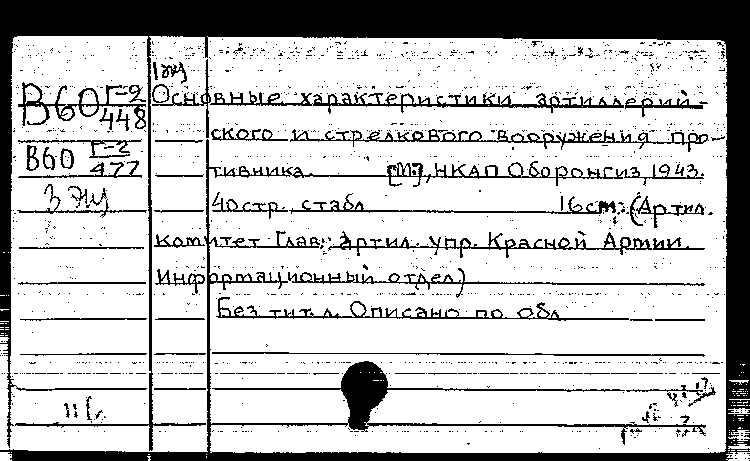 В60 Г-2
448
Основные характеристики артиллерий-
ского и стрелкового вооружения про-
В60 Г-2
477
тивника. [М.], НКАП Оборонгиз, 1943.
3 экз
40 стр., с табл 16 см. (Артил.
комитет Глав. артил. упр. Красной Армии.
Информационный отдел)
Без тит. л. Описано по обл